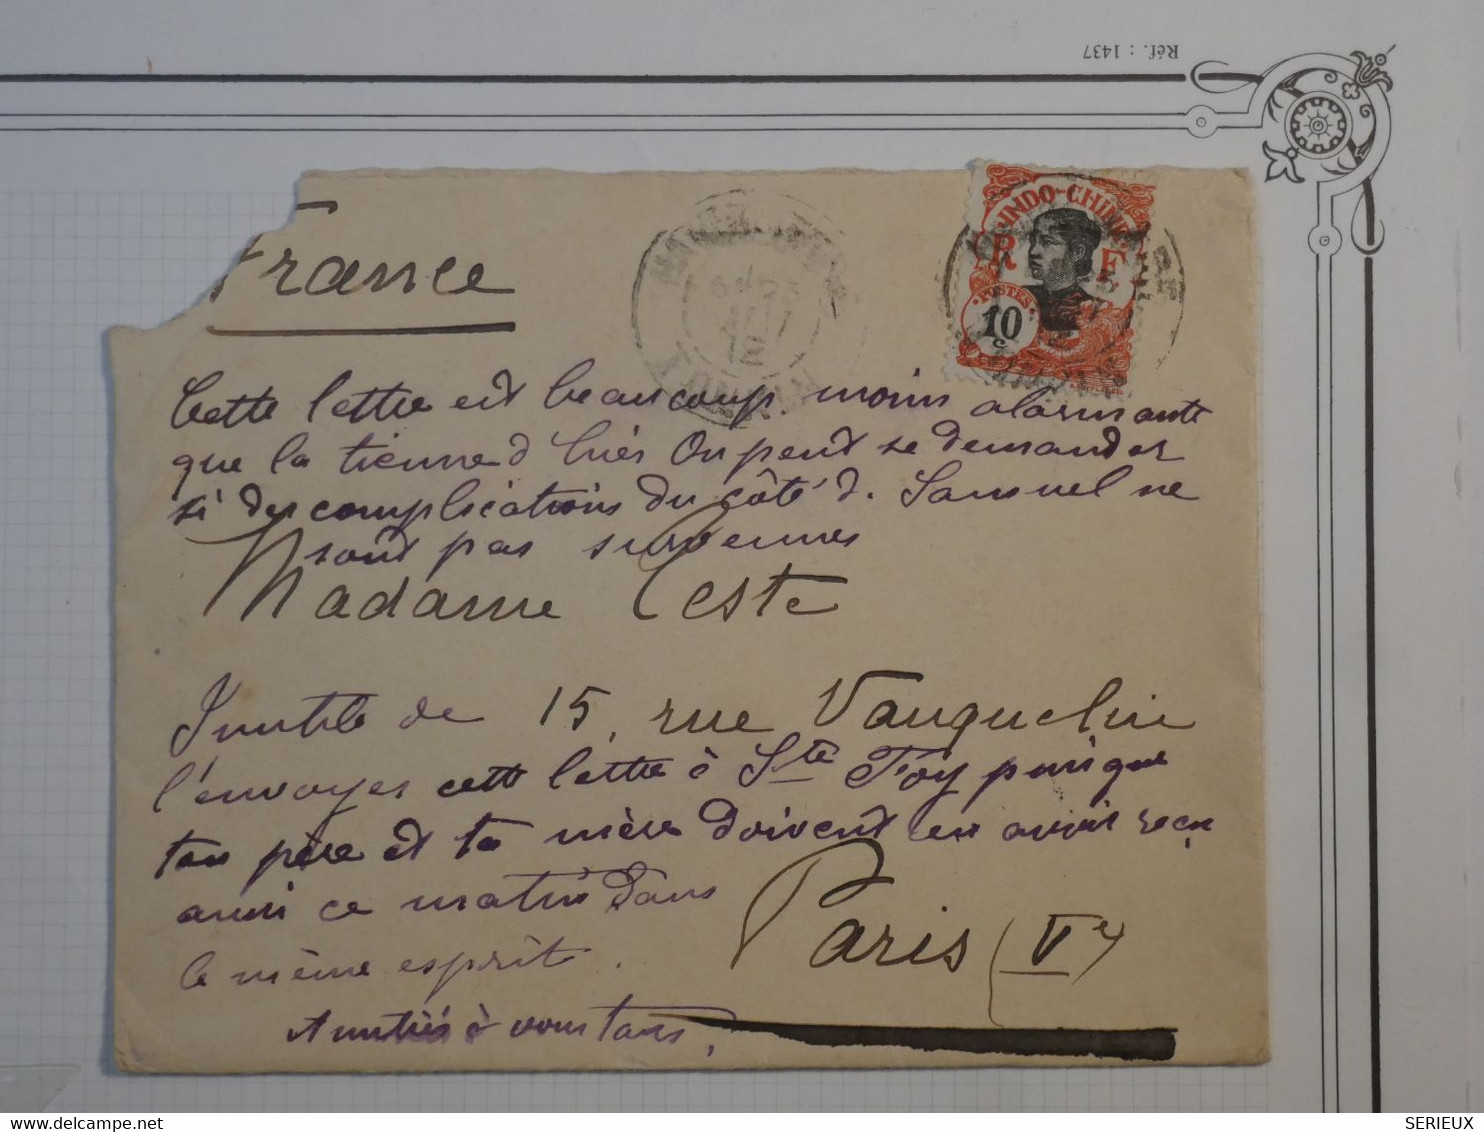 Réf. : 1437
France
INDO-CHINE
R F
POSTES
10
c
TONKIN
Cette lettre est beaucoup moins alarmante
que la tienne d'hier On peut se demander
si des complications du côté d. Samuel ne
sont pas survenues
Madame Ceste
Inutile de 15, rue Vauquelin
l'envoyer cette lettre à Ste Foy puisque
ton père et ta mère doivent en avoir reçu
aussi ce matin dans
le même esprit.
Paris (Ve)
Amitiés à vous tous.
SERIEUX
delcampe.net